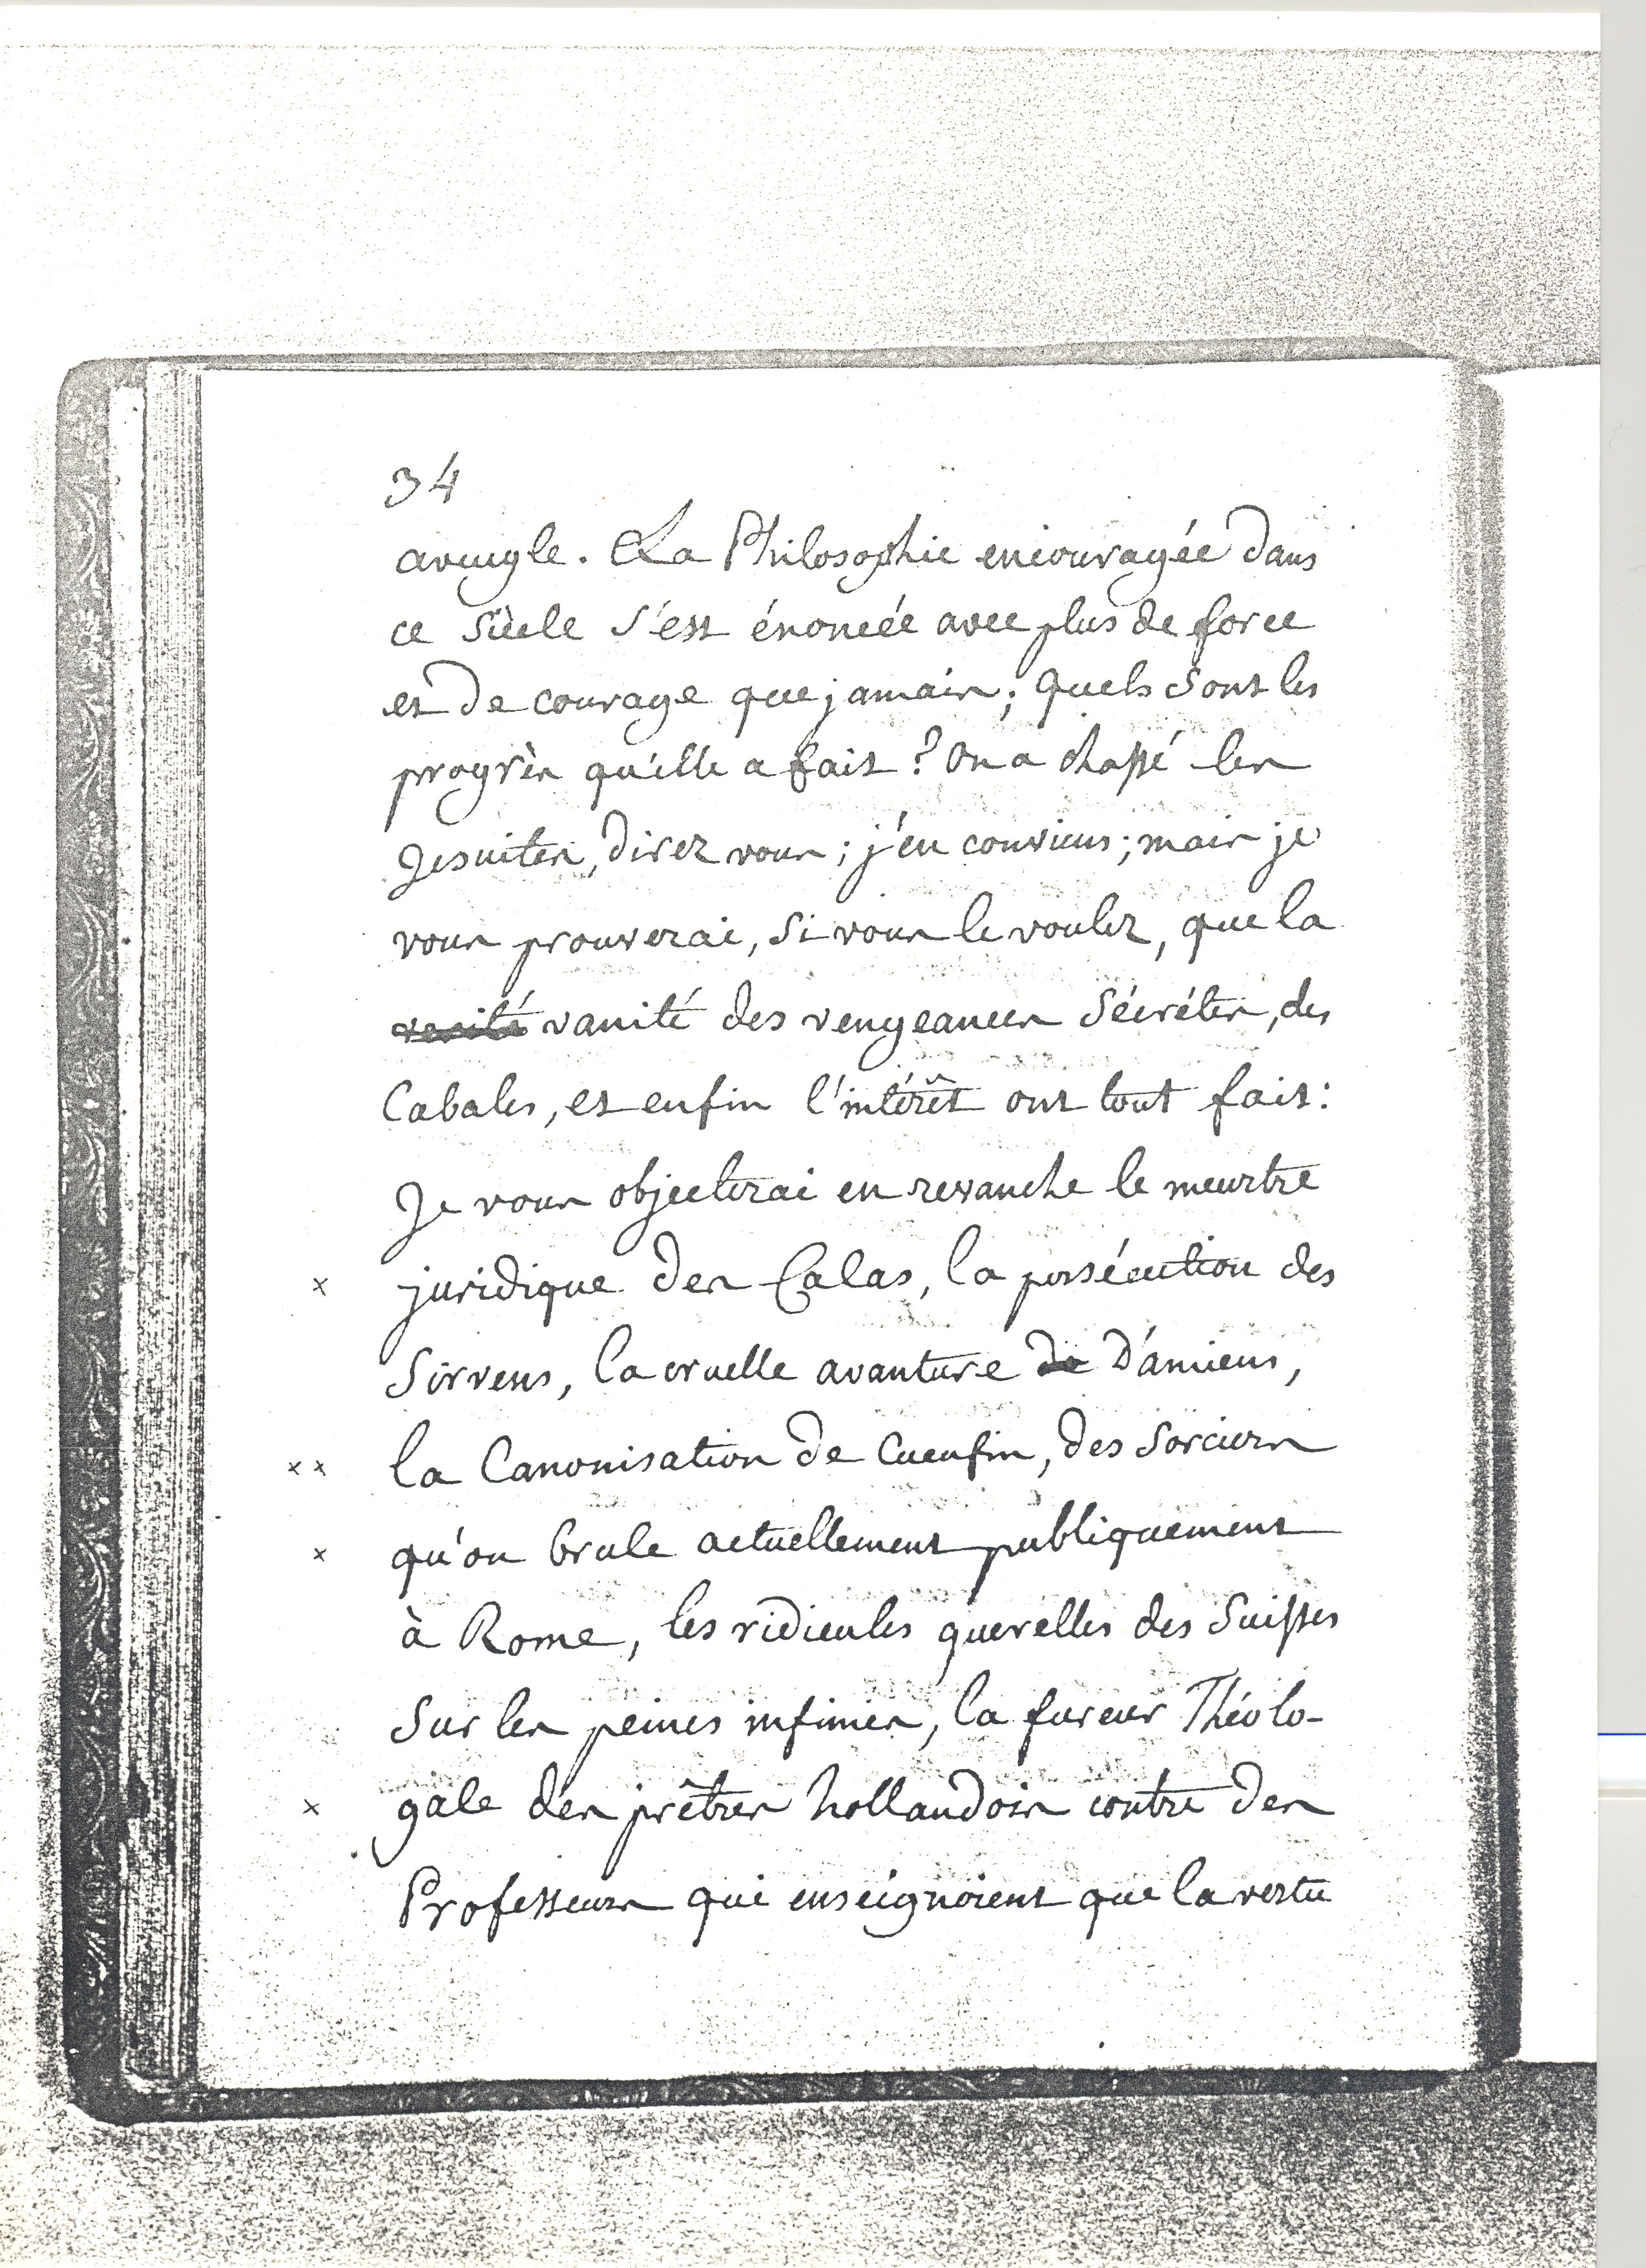 34
aveugle. La Philosophie encouragée dans
ce siècle s'est énoncée avec plus de force
et de courage que jamais; quels sont les
progrès qu'elle a fait? On a chassé les
Jesuites, direz vous; j'en conviens; mais je
vous prouverai, si vous le voulez, que la
verité vanité des vengeances sécrétes, des
Cabales, et enfin l'intérêt ont tout fait:
Je vous objecterai en revanche le meurtre
× juridique des Calas, la persécution des
Sirvens, la cruelle avanture de D'amiens,
×× la Canonisation de Cucufin, des Sorciers
× qu'on brule actuellement publiquement
à Rome, les ridicules querelles des Suisses
sur les peines infinies, la fureur Théolo-
× gale des prêtres hollandois contre des
Professeurs qui enseignoient que la vertu